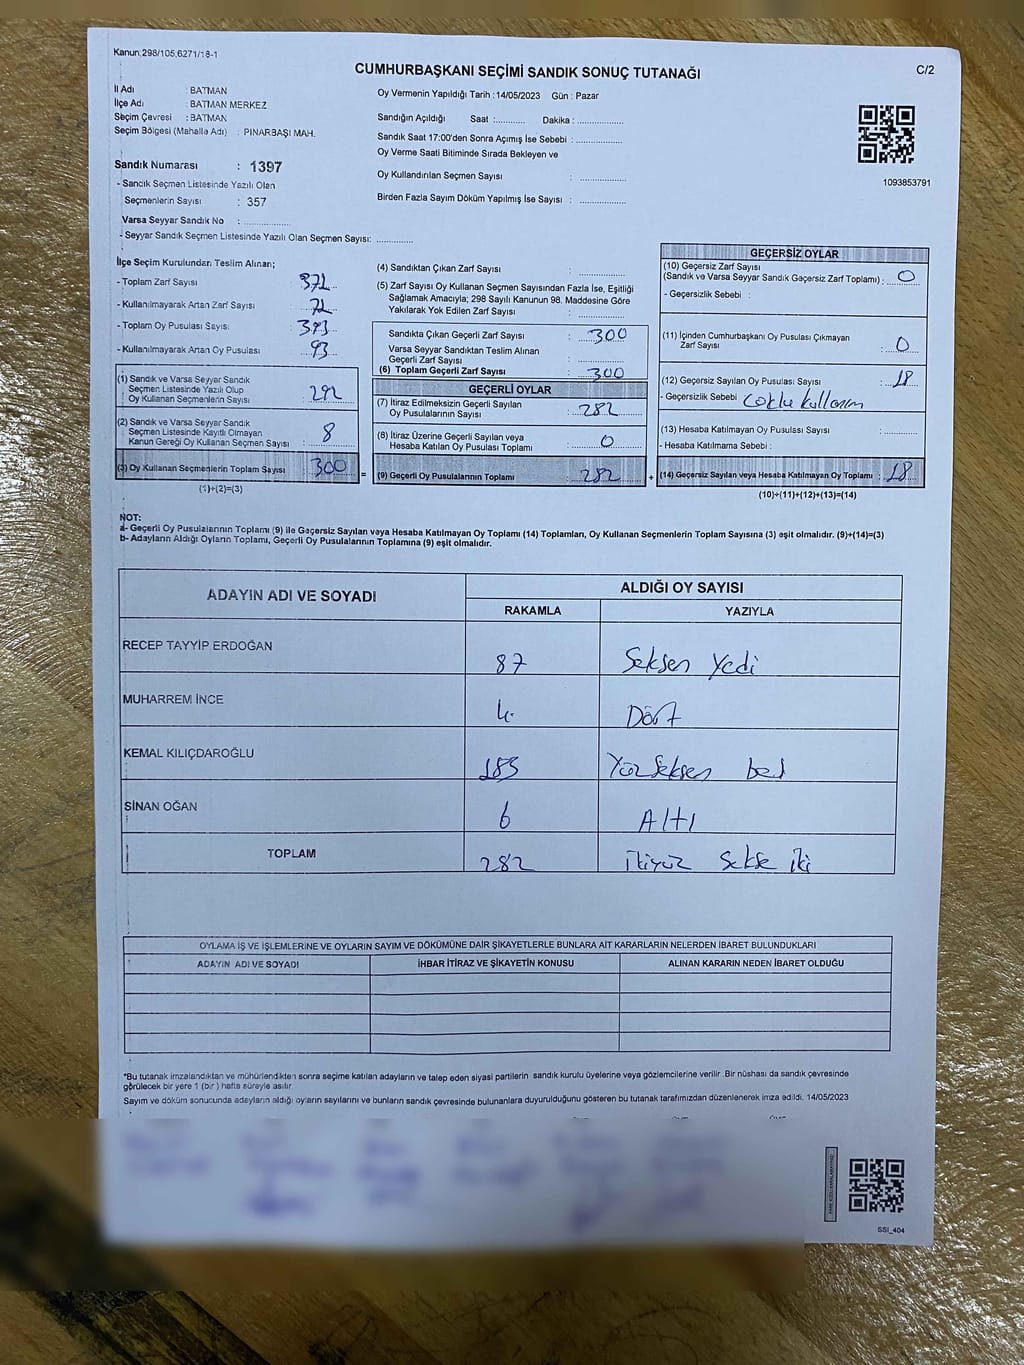 Kanun:298/105,6271/18-1
CUMHURBAŞKANI SEÇİMİ SANDIK SONUÇ TUTANAĞI
C/2
İl Adı : BATMAN
İlçe Adı : BATMAN MERKEZ
Seçim Çevresi : BATMAN
Seçim Bölgesi (Mahalla Adı) : PINARBAŞI MAH.
Sandık Numarası : 1397
- Sandık Seçmen Listesinde Yazılı Olan
Seçmenlerin Sayısı : 357
Varsa Seyyar Sandık No : ..............
- Seyyar Sandık Seçmen Listesinde Yazılı Olan Seçmen Sayısı: ............
Oy Vermenin Yapıldığı Tarih : 14/05/2023 Gün : Pazar
Sandığın Açıldığı Saat :.......... Dakika : ..............
Sandık Saat 17:00'den Sonra Açımış İse Sebebi : ..............
Oy Verme Saati Bitiminde Sırada Bekleyen ve
Oy Kullandırılan Seçmen Sayısı : ..............
Birden Fazla Sayım Döküm Yapılmış İse Sayısı : ..............
1093853791
İlçe Seçim Kurulundan Teslim Alınan;
- Toplam Zarf Sayısı : 372
- Kullanılmayarak Artan Zarf Sayısı : 72
- Toplam Oy Pusulası Sayısı : 393
- Kullanılmayarak Artan Oy Pusulası : 93
(1) Sandık ve Varsa Seyyar Sandık
Seçmen Listesinde Yazılı Olup
Oy Kullanan Seçmenlerin Sayısı : 292
(2) Sandık ve Varsa Seyyar Sandık
Seçmen Listesinde Kayıtlı Olmayan
Kanun Gereği Oy Kullanan Seçmen Sayısı : 8
(3) Oy Kullanan Seçmenlerin Toplam Sayısı 300 =
(1)+(2)=(3)
(4) Sandıktan Çıkan Zarf Sayısı : ..............
(5) Zarf Sayısı Oy Kullanan Seçmen Sayısından Fazla İse, Eşitliği
Sağlamak Amacıyla; 298 Sayılı Kanunun 98. Maddesine Göre
Yakılarak Yok Edilen Zarf Sayısı : ..............
Sandıkta Çıkan Geçerli Zarf Sayısı : 300
Varsa Seyyar Sandıktan Teslim Alınan
Geçerli Zarf Sayısı : ..............
(6) Toplam Geçerli Zarf Sayısı : 300
GEÇERLİ OYLAR
(7) İtiraz Edilmeksizin Geçerli Sayılan
Oy Pusulalarının Sayısı : 282
(8) İtiraz Üzerine Geçerli Sayılan veya
Hesaba Katılan Oy Pusulası Toplamı : 0
(9) Geçerli Oy Pusulalarının Toplamı : 282 +
GEÇERSİZ OYLAR
(10) Geçersiz Zarf Sayısı
(Sandık ve Varsa Seyyar Sandık Geçersiz Zarf Toplamı) : 0
- Geçersizlik Sebebi :
(11) İçinden Cumhurbaşkanı Oy Pusulası Çıkmayan
Zarf Sayısı : 0
(12) Geçersiz Sayılan Oy Pusulası Sayısı : 18
- Geçersizlik Sebebi Çoklu Kullanım
(13) Hesaba Katılmayan Oy Pusulası Sayısı : ..............
- Hesaba Katılmama Sebebi :
(14) Geçersiz Sayılan veya Hesaba Katılmayan Oy Toplamı : 18
(10)+(11)+(12)+(13)=(14)
NOT:
a- Geçerli Oy Pusulalarının Toplamı (9) ile Geçersiz Sayılan veya Hesaba Katılmayan Oy Toplamı (14) Toplamları, Oy Kullanan Seçmenlerin Toplam Sayısına (3) eşit olmalıdır. (9)+(14)=(3)
b- Adayların Aldığı Oyların Toplamı, Geçerli Oy Pusulalarının Toplamına (9) eşit olmalıdır.
ADAYIN ADI VE SOYADI
ALDIĞI OY SAYISI
RAKAMLA YAZIYLA
RECEP TAYYİP ERDOĞAN 87 Seksen Yedi
MUHARREM İNCE 4 Dört
KEMAL KILIÇDAROĞLU 185 Yüz Seksen beş
SİNAN OĞAN 6 Altı
TOPLAM 282 İkiyüz Sekse iki
OYLAMA İŞ VE İŞLEMLERİNE VE OYLARIN SAYIM VE DÖKÜMÜNE DAİR ŞİKAYETLERLE BUNLARA AİT KARARLARIN NELERDEN İBARET BULUNDUKLARI
ADAYIN ADI VE SOYADI İHBAR İTİRAZ VE ŞİKAYETİN KONUSU ALINAN KARARIN NEDEN İBARET OLDUĞU
*Bu tutanak imzalandıktan ve mühürlendikten sonra seçime katılan adayların ve talep eden siyasi partilerin sandık kurulu üyelerine veya gözlemcilerine verilir. Bir nüshası da sandık çevresinde
görülecek bir yere 1 (bir) hafta süreyle asılır.
Sayım ve döküm sonucunda adayların aldığı oyların sayılarını ve bunların sandık çevresinde bulunanlara duyurulduğunu gösteren bu tutanak tarafımızdan düzenlenerek imza edildi. 14/05/2023
SSI_404